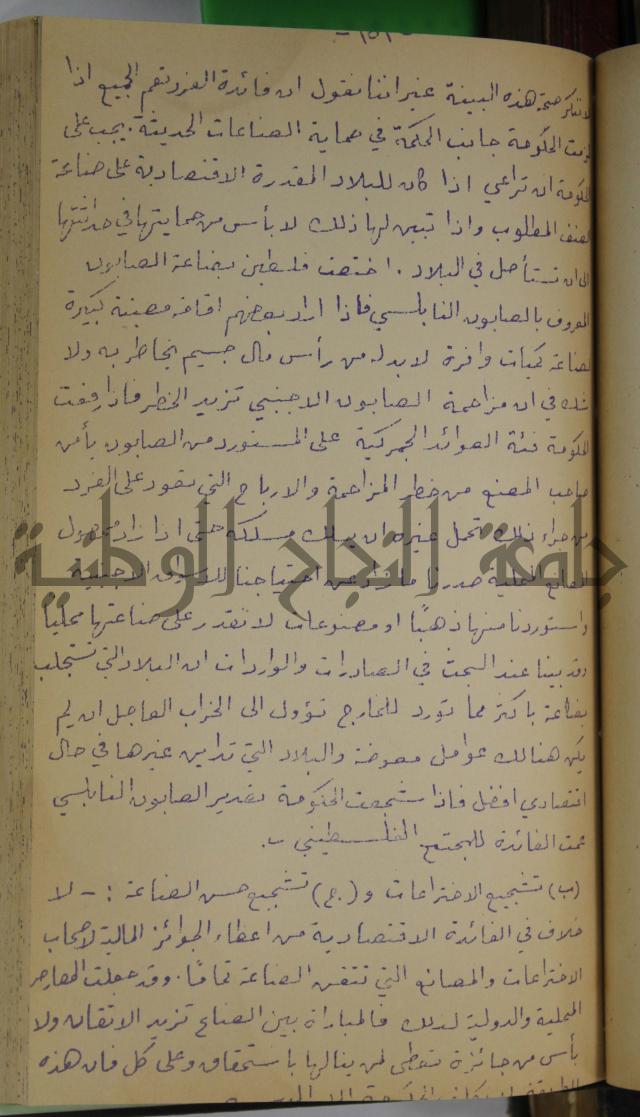 - ١٥١ -
لا ننكر صحة هذه البينة غير اننا نقول ان فائدة الفرد تعم الجميع اذا
لزمت الحكومة جانب الحكمة في حماية الصناعات الحديثة. يجب على
الحكومة ان تراعي اذا كان للبلاد المقدرة الاقتصادية على صناعة
الصنف المطلوب واذا تبين لها ذلك لا بأس من حمايتها في حداثتها
الى ان تستأصل في البلاد. اختصت فلسطين بصناعة الصابون
المعروف بالصابون النابلسي فاذا اراد بعضهم اقامة مصبنة كبيرة
لصناعة كميات وافرة لا بد له من رأس مال جسيم يخاطر به ولا
شك في ان مزاحمة الصابون الاجنبي تزيد الخطر فاذا رفعت
الحكومة فئة العوائد الجمركية على المستورد من الصابون يأمن
صاحب المصنع من خطر المزاحمة والارباح التي تعود على الفرد
من جراء ذلك تحمل غيره ان يسلك مسلكه حتى اذا زاد محصول
المصانع المحلية صدرنا ما زاد عن احتياجنا للاسواق الاجنبية
واستوردنا منها ذهبًا او مصنوعات لا نقدر على صناعتها محليًا
وقد بينا عند البحث في الصادرات والواردات ان البلاد التي تستجلب
بضاعة باكثر مما تورد للخارج تؤول الى الخراب العاجل ان لم
يكن هنالك عوامل معوضة والبلاد التي تداين غيرها في حال
اقتصادي افضل فاذا شجعت الحكومة تصدير الصابون النابلسي
عمت الفائدة للمجتمع الفلسطيني.
(ب) تشجيع الاختراعات و (ج) تشجيع حسن الصناعة :- لا
خلاف في الفائدة الاقتصادية من اعطاء الجوائز المالية لاصحاب
الاختراعات والمصانع التي تتقن الصناعة تمامًا. وقد جعلت المعارض
المحلية والدولية لذلك فالمباراة بين الصناع تزيد الاتقان ولا
بأس من جائزة تعطى لمن ينالها باستحقاق وعلى كل فان هذه
جامعة النجاح الوطنية